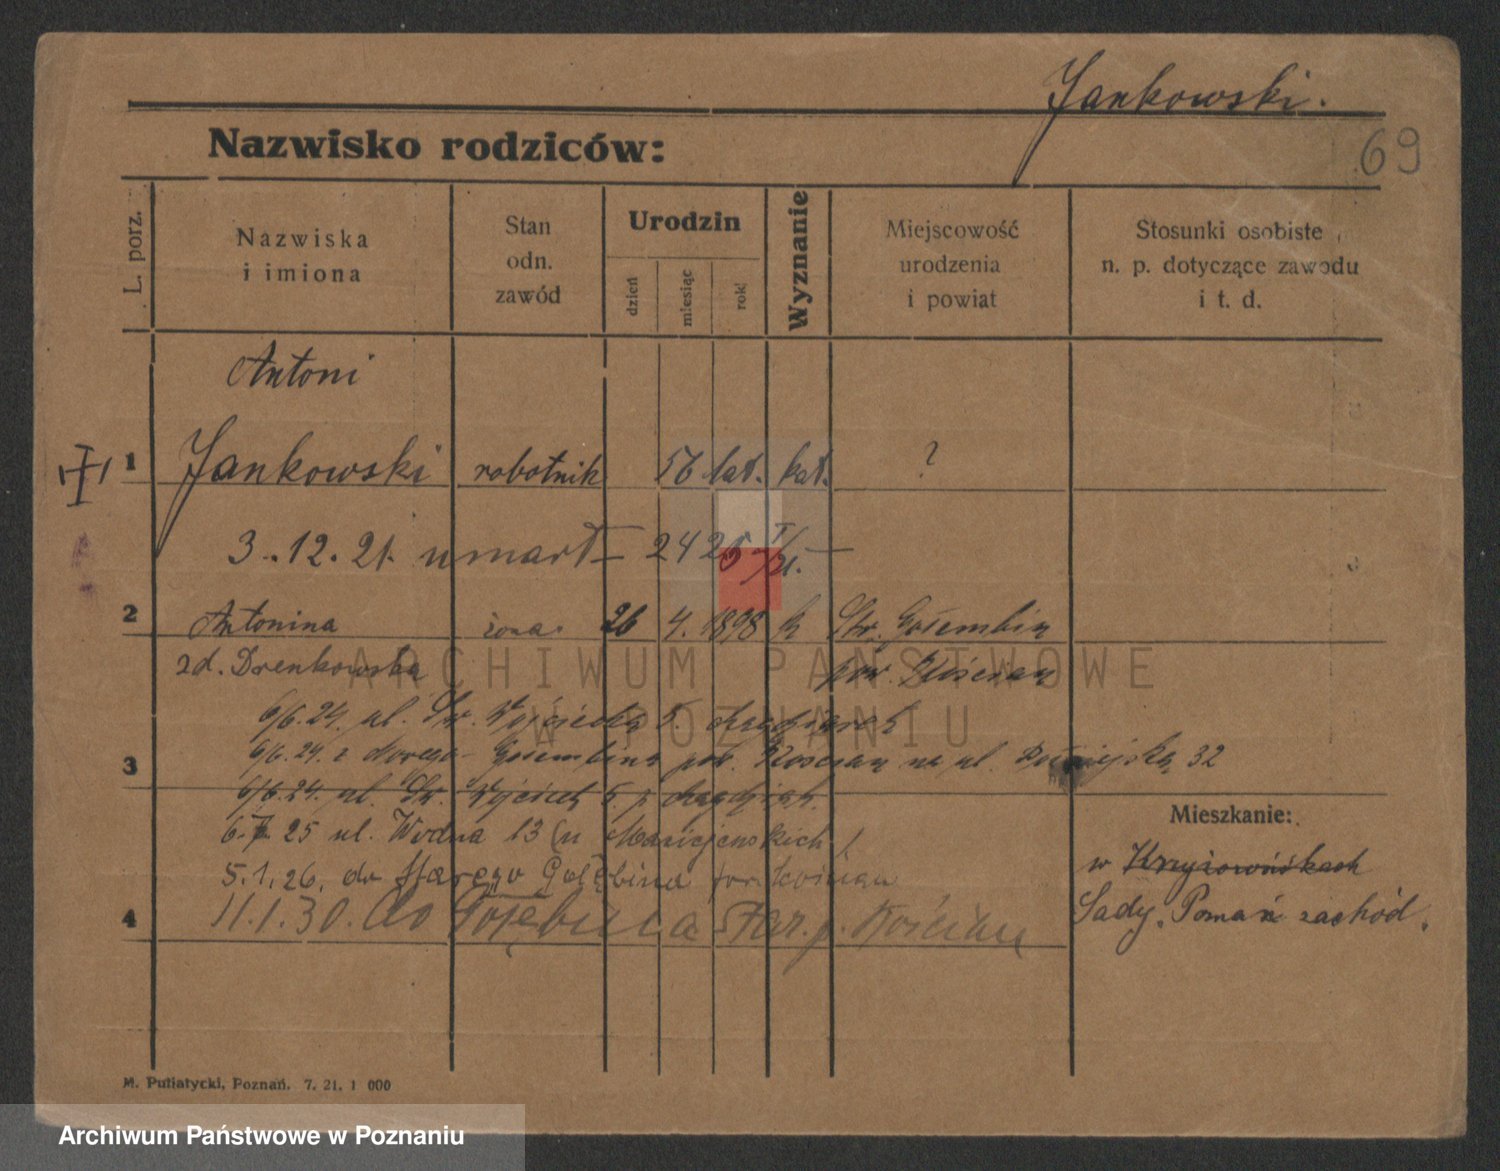 Jankowski.
Nazwisko rodziców:
69
L. porz.
Nazwiska
i imiona
Stan
odn.
zawód
Urodzin
dzień
miesiąc
rok
Wyznanie
Miejscowość
urodzenia
i powiat
Stosunki osobiste
n. p. dotyczące zawodu
i t. d.
Antoni
1 Jankowski robotnik 56 lat. kat. ?
3.12.21. umarł 24 25
2 Antonina żona. 26 4. 1898 k Str. Gołembin
zd. Drenkowska pow. Kościan
6/6.24. ul. Św.
3 6/6.24. z Gołembina pow. Kościan na ul. 32
6/6.24. ul. Św. Wojciech 5.
25 ul. Wodna 13 (u
5.1.26. do Starego Gołębina
4 11.1.30. do Gołębina Star. p. Kościan
Mieszkanie:
w Krzyżownikach
Sady. Poznań zachód.
M. Putiatycki, Poznań. 7. 21. 1 000
ARCHIWUM PAŃSTWOWE
W POZNANIU
Archiwum Państwowe w Poznaniu